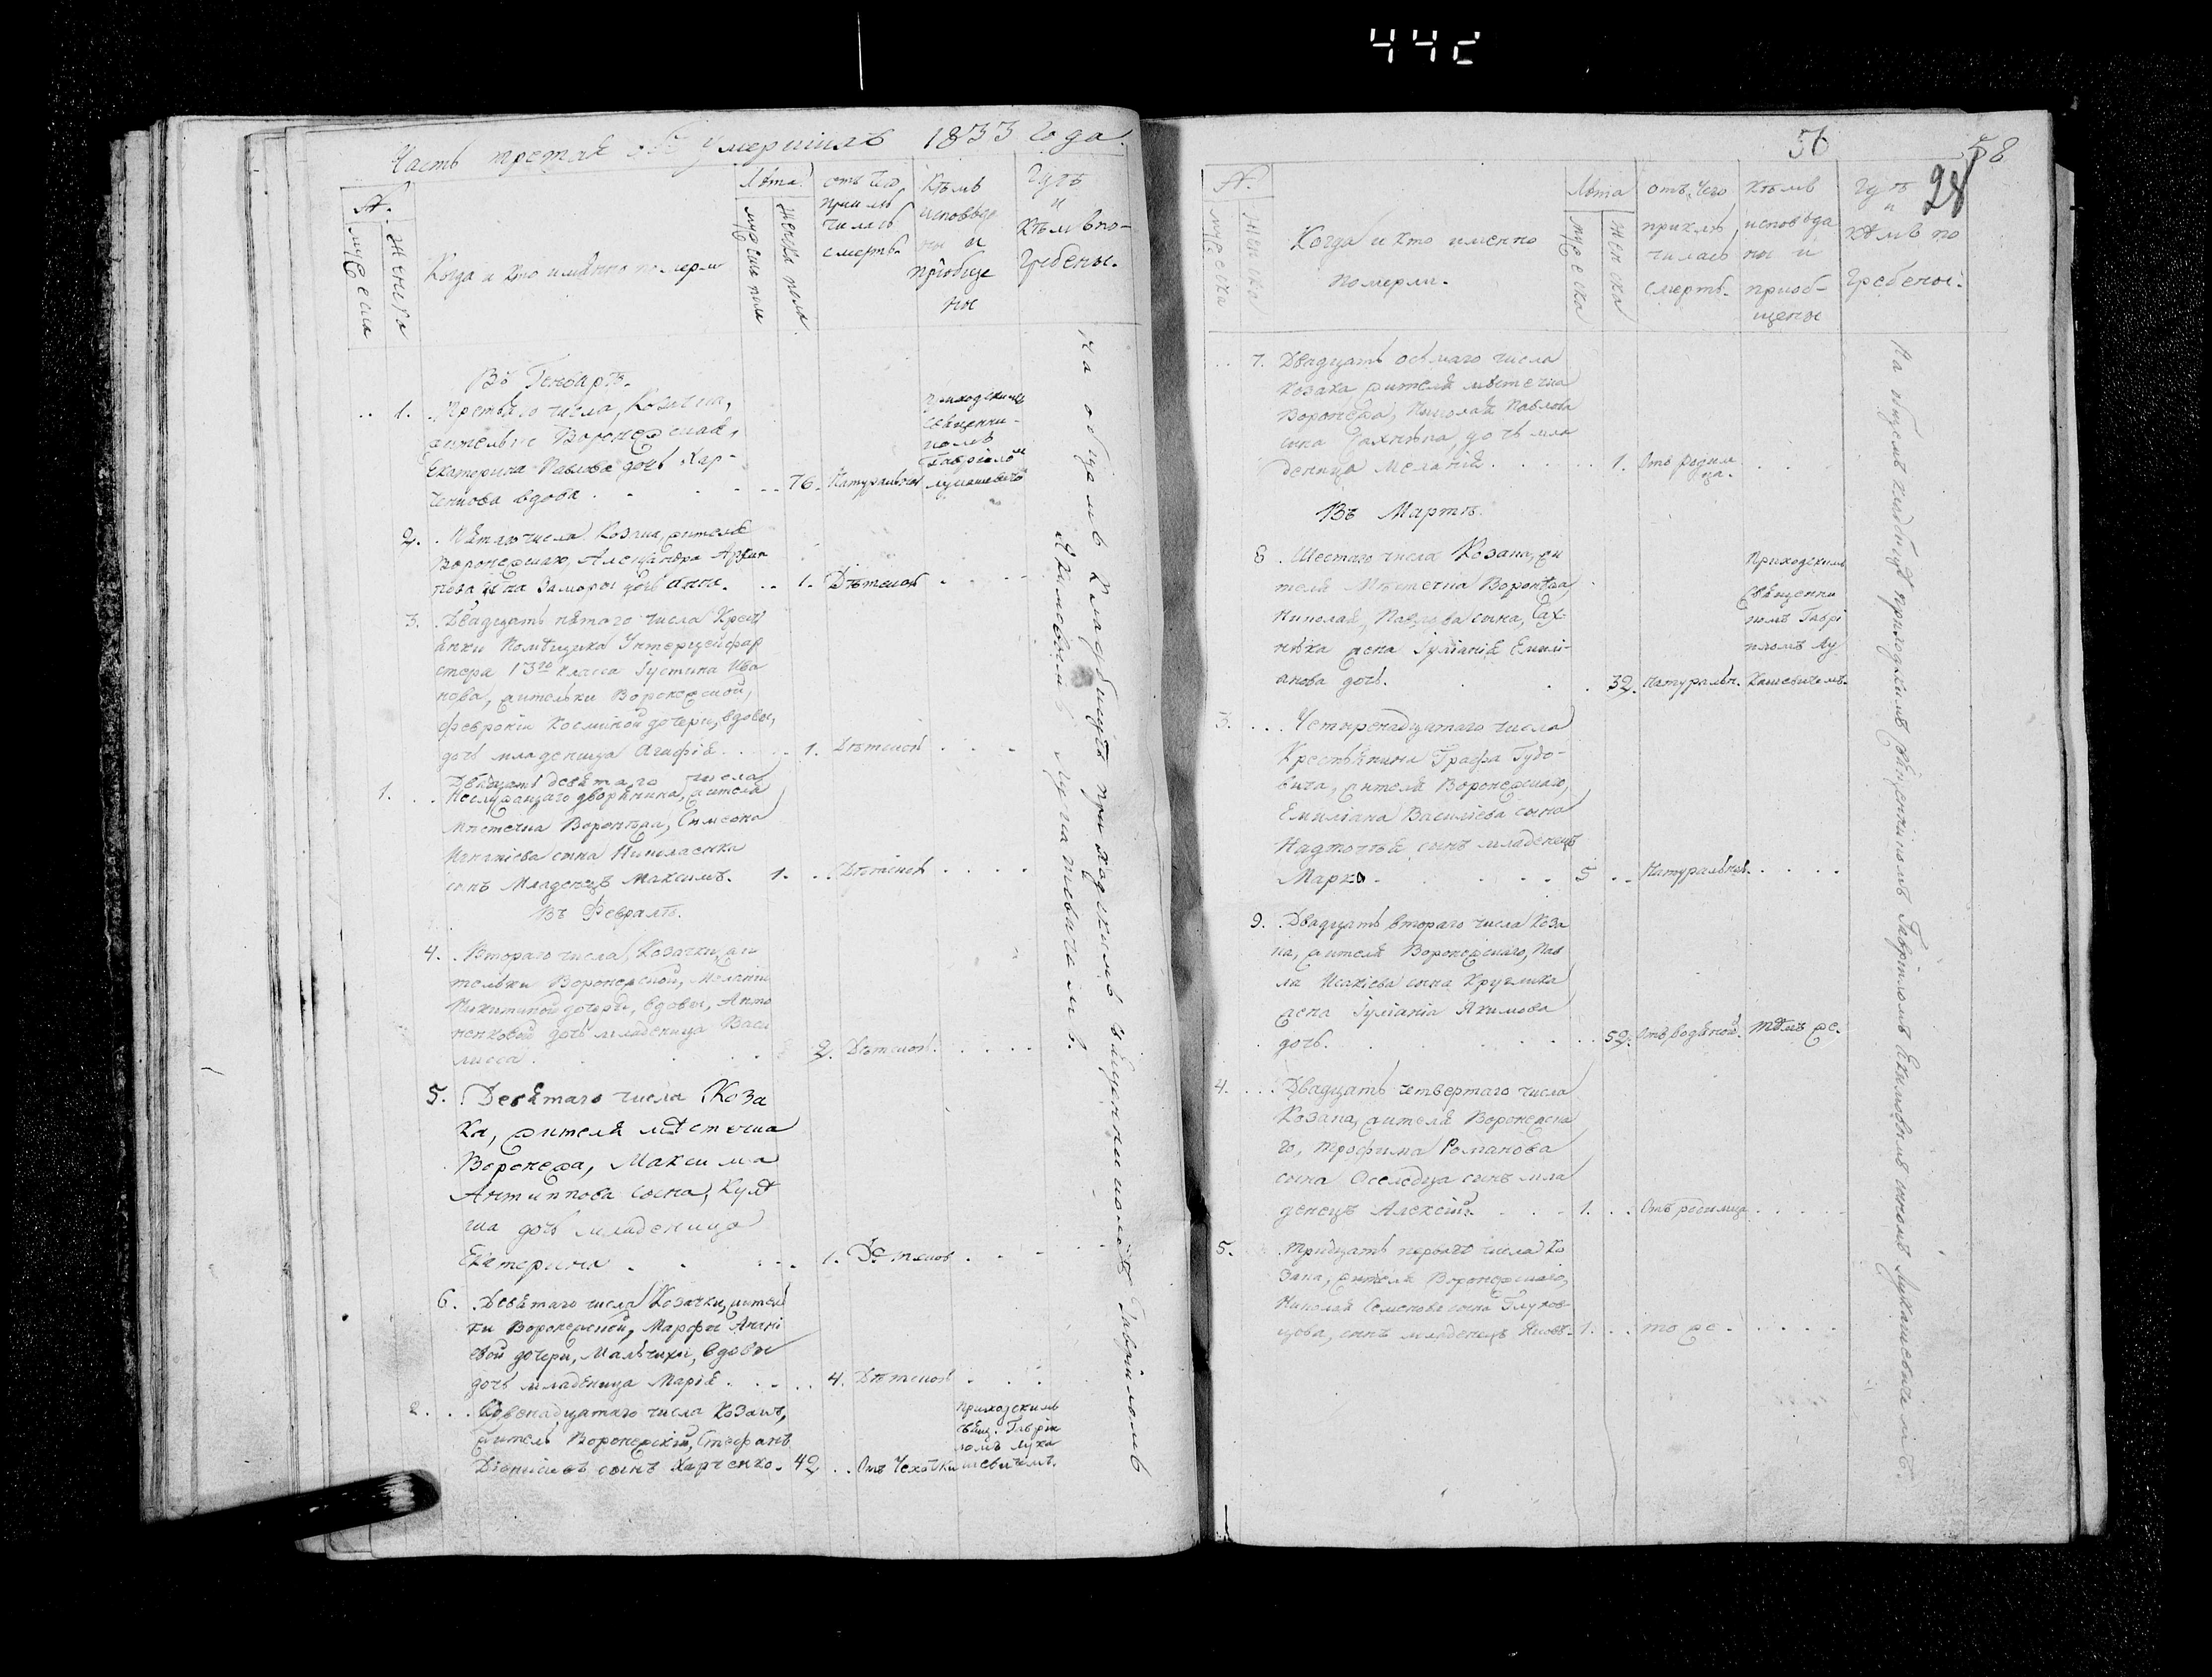 442
Часть третяя объ Умершихъ 1833 Года.
№.
мужеска
Женска
Когда и кто имянно померли
Лѣта.
мужеска пола
Женска пола.
отъ чего
приклю
чилась
смерть.
Кѣмъ
исповѣда
ны и
пріобще
ны
Гдѣ
и
Кѣмъ по-
гребены.
Въ Генварѣ.
1. Третьяго числа, Козачка,
жителька Воронежская,
Екатерина Павлова дочь Хар-
ченкова вдова 76. Натуральной
Приходскимъ
священни-
комъ
Гавріиломъ
Лукашевичемъ
2. Пятаго числа Козака, жителя
Воронежскаго, Александра Архи
пова сына Заморы дочь Анна. 1. Дѣтской
3. Двадцать пятаго числа Крест
янки Помѣщика Унтерцейхвар
тера 13го класса Густина Ива
нова, жительки Воронежской,
Февроніи Косминой дочери, вдовы,
дочь младеница Агафія 1. Дѣтской
Двадцать девятаго числа
1. Неслужащаго дворянина, жителя
Мѣстечка Воронежа, Симеона
Игнатіева сына Николаенка
сынъ Младенецъ Максимъ. 1. Дѣтской
Въ Февралѣ.
4. Втораго числа, Козачки, жи
тельки Воронежской, Меланіи
Никитиной дочери, вдовы, Анто
ненковой дочь младеница Васи
лисса 2. Дѣтской
5. Девятаго числа Коза
ка, жителя мѣстечка
Воронежа, Максима
Антиппова сына, Куля
ша дочь младеница
Екатерина 1. Дѣтской
6. Девятаго числа Козачки, житель
ки Воронежской, Марфы Анані
евой дочери, Мальчихи, вдовы
дочь младеница Марія 4. Дѣтской
2. Двенадцатаго числа Козакъ,
житель Воронежскій, Стефанъ
Діонисіевъ сынъ Харченко. 42. Отъ Чехотки
Приходскимъ
свящ. Гаврии
ломъ Лука
шевичемъ.
На общемъ кладбищѣ приходскимъ священникомъ Гавріиломъ
Якимовымъ Лукашевичемъ.
56
58
28
№.
мужеска
Женска
Когда и кто именно
померли.
Лѣта
мужеска
женска
отъ чего
приклю
чилась
смерть.
Кѣмъ
исповѣда
ны и
приоб-
щены
Гдѣ
и
кѣмъ по
гребены.
7. Двадцать осьмаго числа
Козака, жителя мѣстечка
Воронежа, Николая Павлова
сына Сахнѣка, дочь мла
деница Меланія 1. Отъ родим
ца.
Въ Мартѣ.
8. Шестаго числа Козака, жи
теля Мѣстечка Воронежа,
Николая, Павлова сына, Сах-
нѣка жена Іуліанія Емили-
анова дочь. 32. Натуральн.
Приходскимъ
Священни
комъ Гаврі
иломъ Лу
кашевичемъ.
3. Четыренадцатаго числа
Крестьянина Графа Гудо-
вича, жителя Воронежскаго,
Емиліана Василіева сына
Надточѣя сынъ младенецъ
Марко. 5 Натуральной
9. Двадцать втораго числа Коза
ка, жителя Воронежскаго, Пав
ла Исакіева сына Круглика
жена Іуліанія Якимова
дочь. 52. Отъ водяной. Тѣмъ же.
4. Двадцать четвертаго числа
Козака, жителя Воронежска
го, Трофима Романова
сына Оселедца сынъ мла
денецъ Алексій. 1. Отъ родимца
5. Тридцать перваго числа Ко
зака, жителя Воронежскаго,
Николая Семенова сына Глухов-
цова, сынъ младенецъ Яковъ. 1. то же.
На общемъ кладбищѣ приходскимъ священникомъ Гавріиломъ Екимовымъ сыномъ Лукашевичемъ.